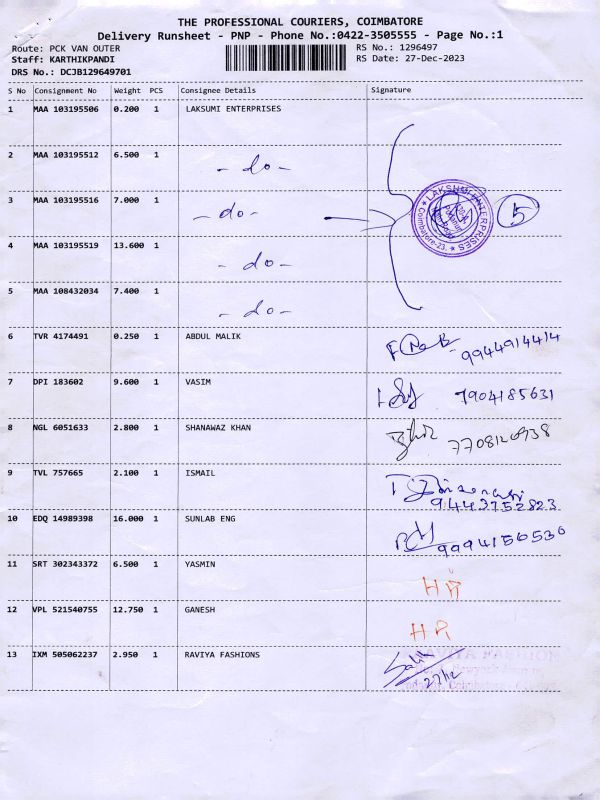 THE PROFESSIONAL COURIERS, COIMBATORE
Delivery Runsheet - PNP - Phone No.:0422-3505555 - Page No.:1
Route: PCK VAN OUTER RS No.: 1296497
Staff: KARTHIKPANDI RS Date: 27-Dec-2023
DRS No.: DCJB129649701
S No Consignment No Weight PCS Consignee Details Signature
1 MAA 103195506 0.200 1 LAKSUMI ENTERPRISES
2 MAA 103195512 6.500 1 - do -
3 MAA 103195516 7.000 1 - do - LAKSHMI ENTERPRISES Coimbatore-23. 5
4 MAA 103195519 13.600 1 - do -
5 MAA 108432034 7.400 1 - do -
6 TVR 4174491 0.250 1 ABDUL MALIK 9944914414
7 DPI 183602 9.600 1 VASIM 7904185631
8 NGL 6051633 2.800 1 SHANAWAZ KHAN
9 TVL 757665 2.100 1 ISMAIL 9443752823
10 EDQ 14989398 16.000 1 SUNLAB ENG 9994156530
11 SRT 302343372 6.500 1 YASMIN
12 VPL 521540755 12.750 1 GANESH
13 IXM 505062237 2.950 1 RAVIYA FASHIONS